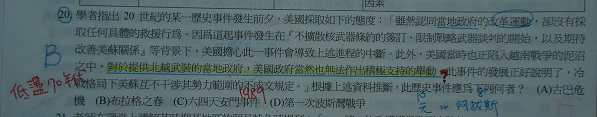 因素
⑳ 學者指出 20 世紀的某一歷史事件發生前夕，美國採取如下的態度：「雖然認同當地政府的改革運動，卻沒有採
取任何具體的救援行為，因爲這起事件發生在『不擴散核武器條約的簽訂、限制戰略武器談判的開始，以及期待
改善美蘇關係』等背景下，美國擔心此一事件會導致上述進程的中斷。此外，美國當時也正陷入越南戰爭的泥沼
B
之中，對於提供北越武裝的當地政府，美國政府當然也無法作出積極支持的舉動。」此事件的發展正好說明了，冷
低盪70年代
戰格局下美蘇互不干涉其勢力範圍的不成文規定。」根據上述資料推斷，此歷史事件應爲下列何者？ (A)古巴危
1989
機 (B)布拉格之春 (C)六四天安門事件 (D)第一次波斯灣戰爭
阿波斯